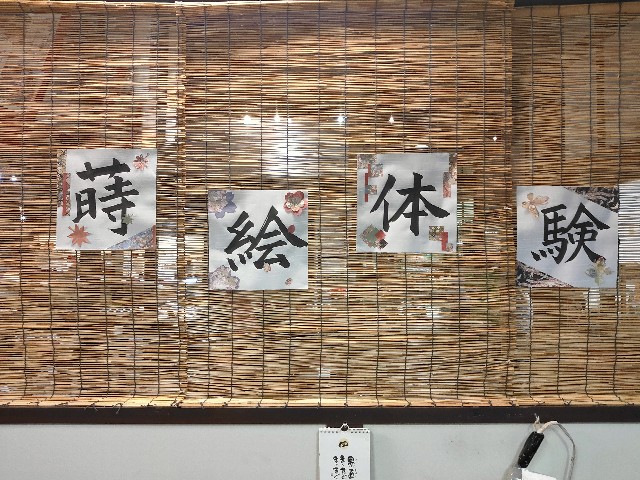 蒔絵体験